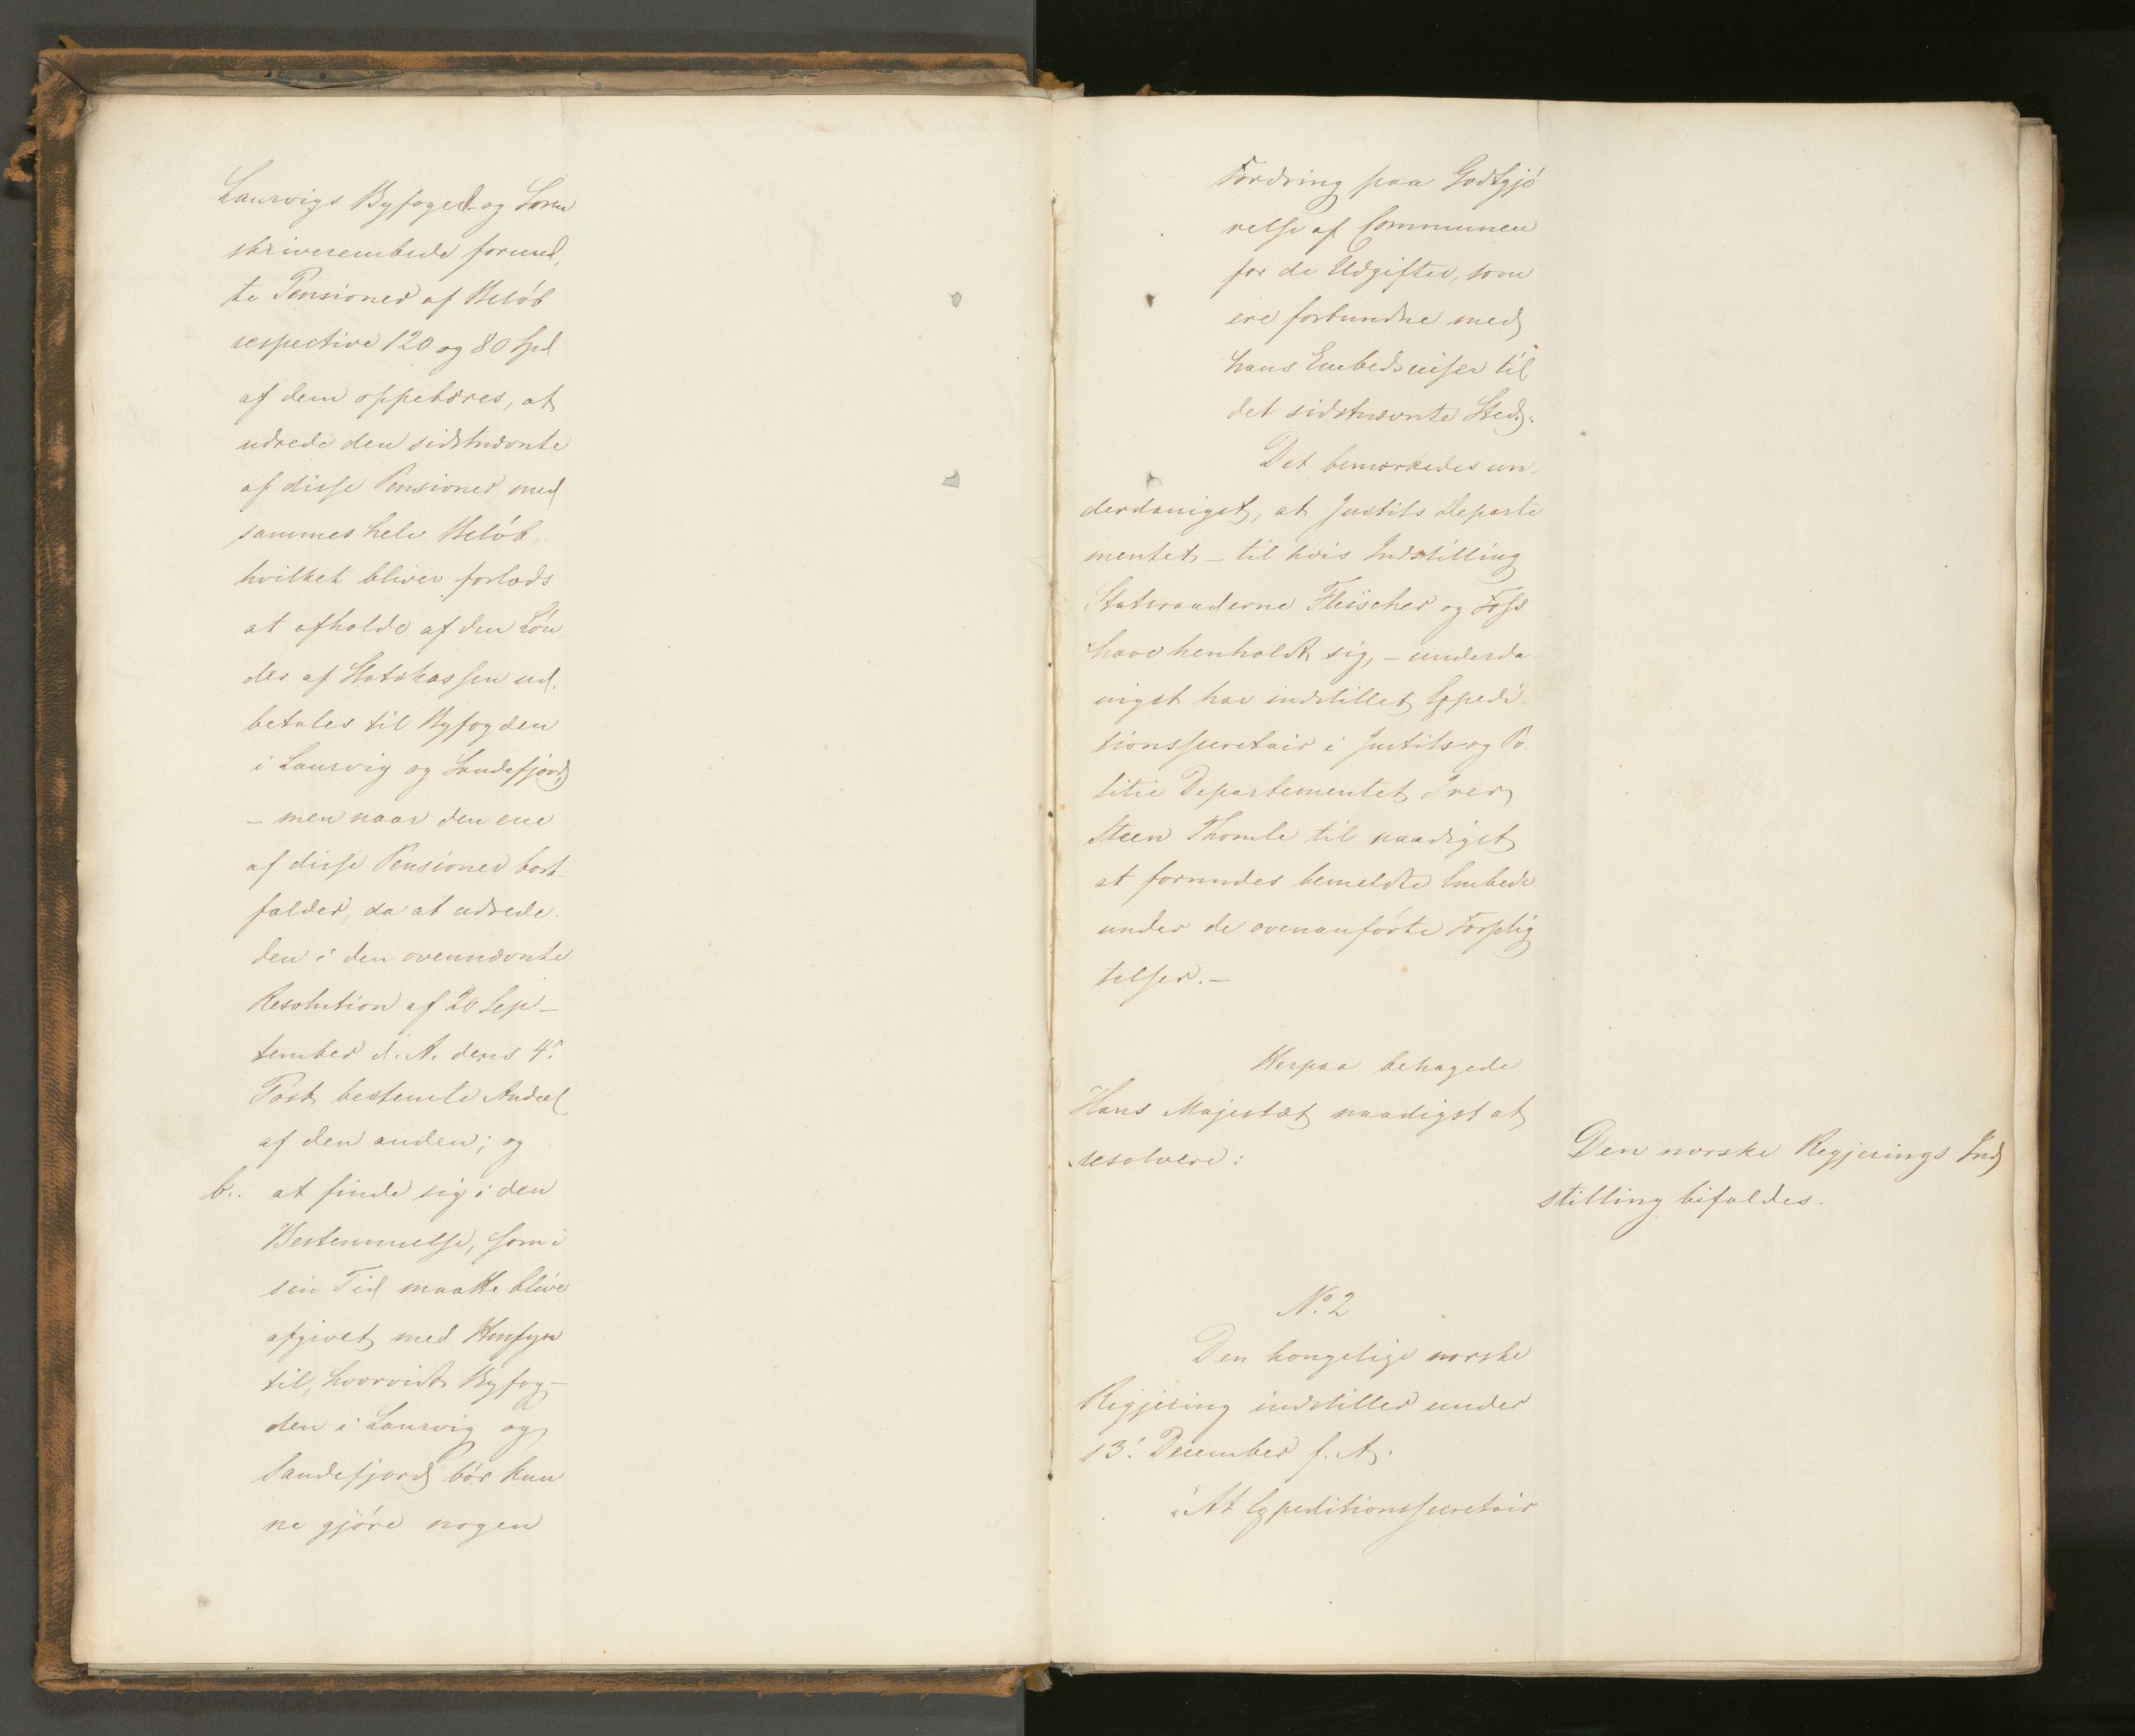 Laurvigs Byfoged- og Soren
skriverembede forund,
te Pensioner af Beløb
respective 120 og 80 Spd
af dem oppebæres, at
udrede den sidstnævnte
af disse Pensioner med
sammes hele Beløb,
hvilket bliver forlods
at afholde af den Løn
der af Statskassen ud.
betales til Byfogden
i Laurvig og Sandefjord,
– men naar den ene
af disse Pensioner bort-
falder, da at udrede
den i den ovennævnte
Resolution af 20 Sep-
tember d. A. dens 4.
Post bestemte Andeel
af den anden; og
b.. at finde sig i den
Bestemmelse, som i
sin Tid maatte blive
afgivet med Hensyn
til, hvorvidt Byfog-
den i Laurvig og
Sandefjord bør kun
ne gjøre nogen
Fordring paa Godtgjö
relse af Communen
for de Udgifter, som
ere forbundne med
hans Embedsreiser til
det sidstnævnte Sted".
Det bemærkedes un-
derdanigst, at Justits Departe
mentet – til hvis Indstilling
Statsraaderne Fleischer og Foss
have henholdt sig, – underda-
nigst har indstillet Expedi-
tionssecretair i Justits og Po
litie Departementet Iver
Steen Thomle til naadigst
at forundes bemeldte Embede
under de ovenanførte Forplig
telser. –
Herpaa behagede
Hans Majestæt naadigst at
resolvere:
Den norske Regjerings Ind
stilling bifaldes.
No. 2
Den kongelige norske
Regjering indstiller under
13. December f. A.
"At Expeditionssecretair